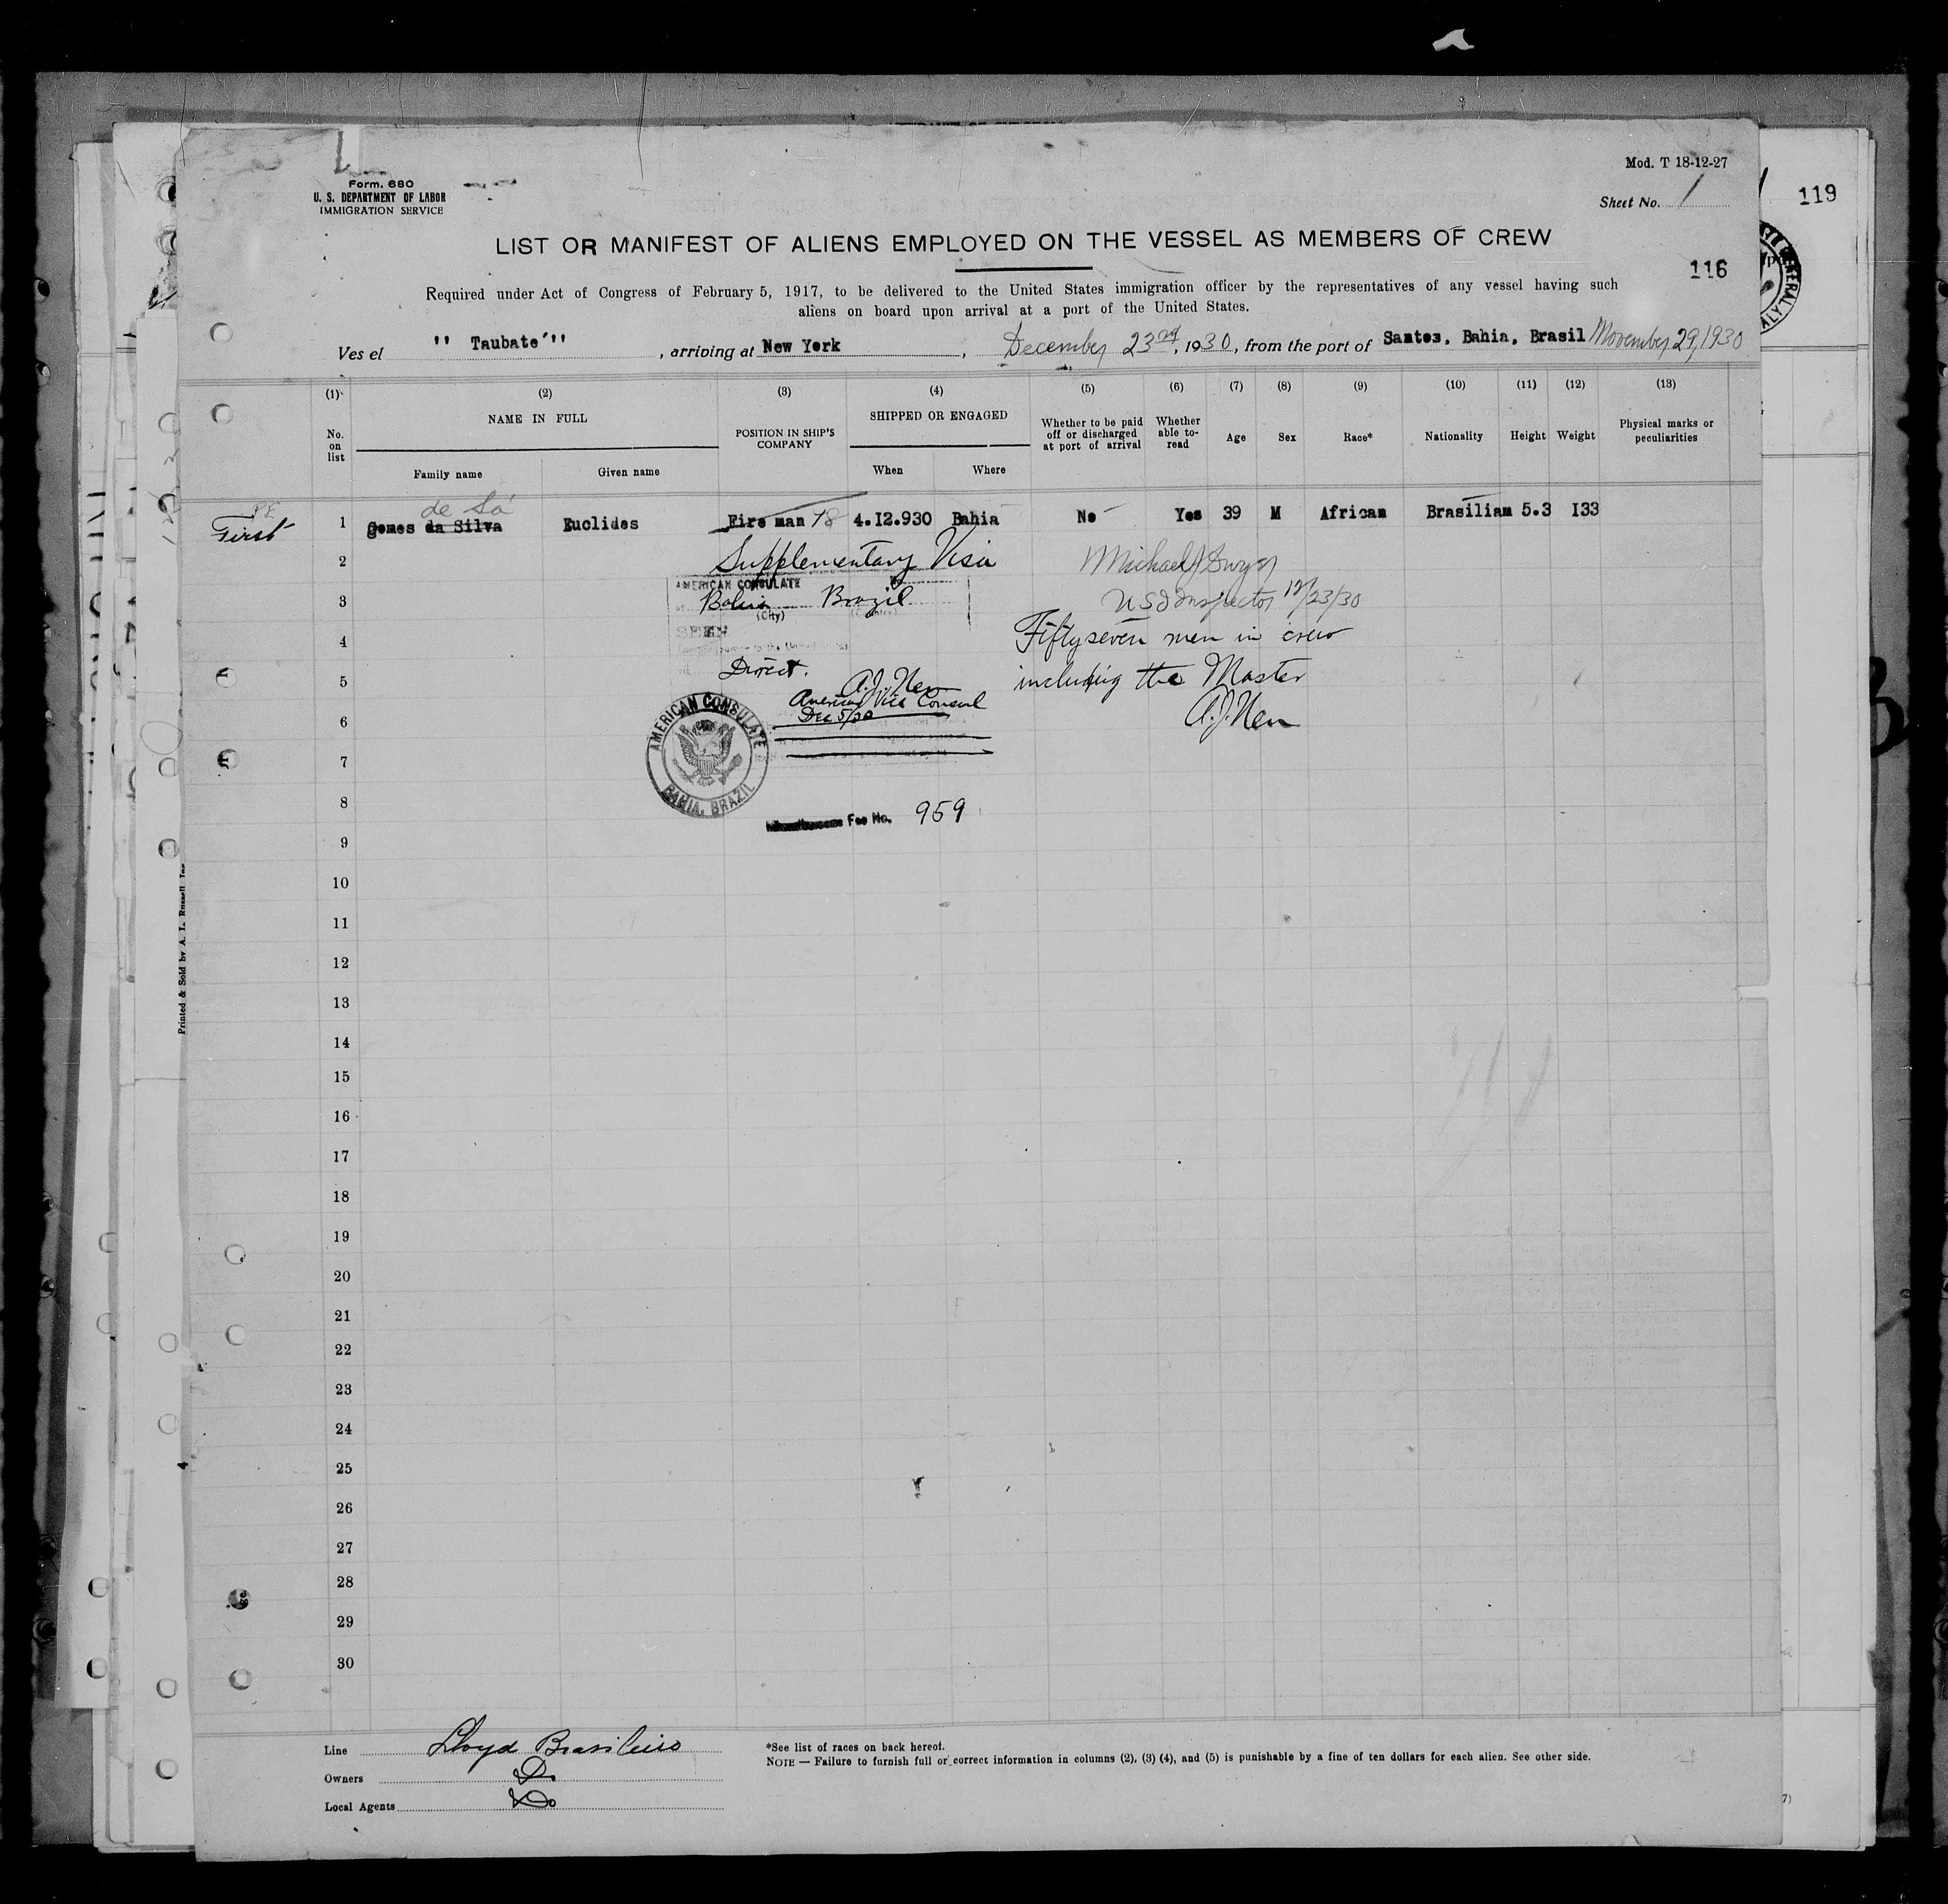 Mod. T 18-12-27
Form. 680
U. S. DEPARTMENT OF LABOR
IMMIGRATION SERVICE
Sheet No. 1
119
LIST OR MANIFEST OF ALIENS EMPLOYED ON THE VESSEL AS MEMBERS OF CREW
116
Required under Act of Congress of February 5, 1917, to be delivered to the United States immigration officer by the representatives of any vessel having such
aliens on board upon arrival at a port of the United States.
Ves el " Taubate'" , arriving at New York , December 23rd, 1930, from the port of Santos, Bahia, Brasil November 29, 1930
(1) (2) (3) (4) (5) (6) (7) (8) (9) (10) (11) (12) (13)
No. on list
NAME IN FULL
Family name Given name
POSITION IN SHIP'S COMPANY
SHIPPED OR ENGAGED
When Where
Whether to be paid off or discharged at port of arrival
Whether able to- read
Age Sex Race* Nationality Height Weight
Physical marks or peculiarities
PE
de Sá
First 1 Gomes da Silva Euclides Fire man 78 4.I2.930 Bahia No Yes 39 M African Brasiliam 5.3 I33
2 Supplementary Visa Michael J Dwyer
AMERICAN CONSULATE
3 Bahia Brazil US Inspector 12/23/30
(City) (Country)
SEEN
4 Fifty seven men in crew
5 Direct. including the Master
A.J. Nen
American Vice Consul
Dec 5/30
6 A.J. Nen
AMERICAN CONSULATE
BAHIA, BRAZIL
7
8 Fee No. 959
9
10
11
12
13
14
15
16
17
18
19
20
21
22
23
24
25
26
27
28
29
30
Printed & Sold by A. L. Russell, Inc
Line Lloyd Brasileiro
Owners Do
Local Agents Do
*See list of races on back hereof.
NOTE — Failure to furnish full or correct information in columns (2), (3) (4), and (5) is punishable by a fine of ten dollars for each alien. See other side.